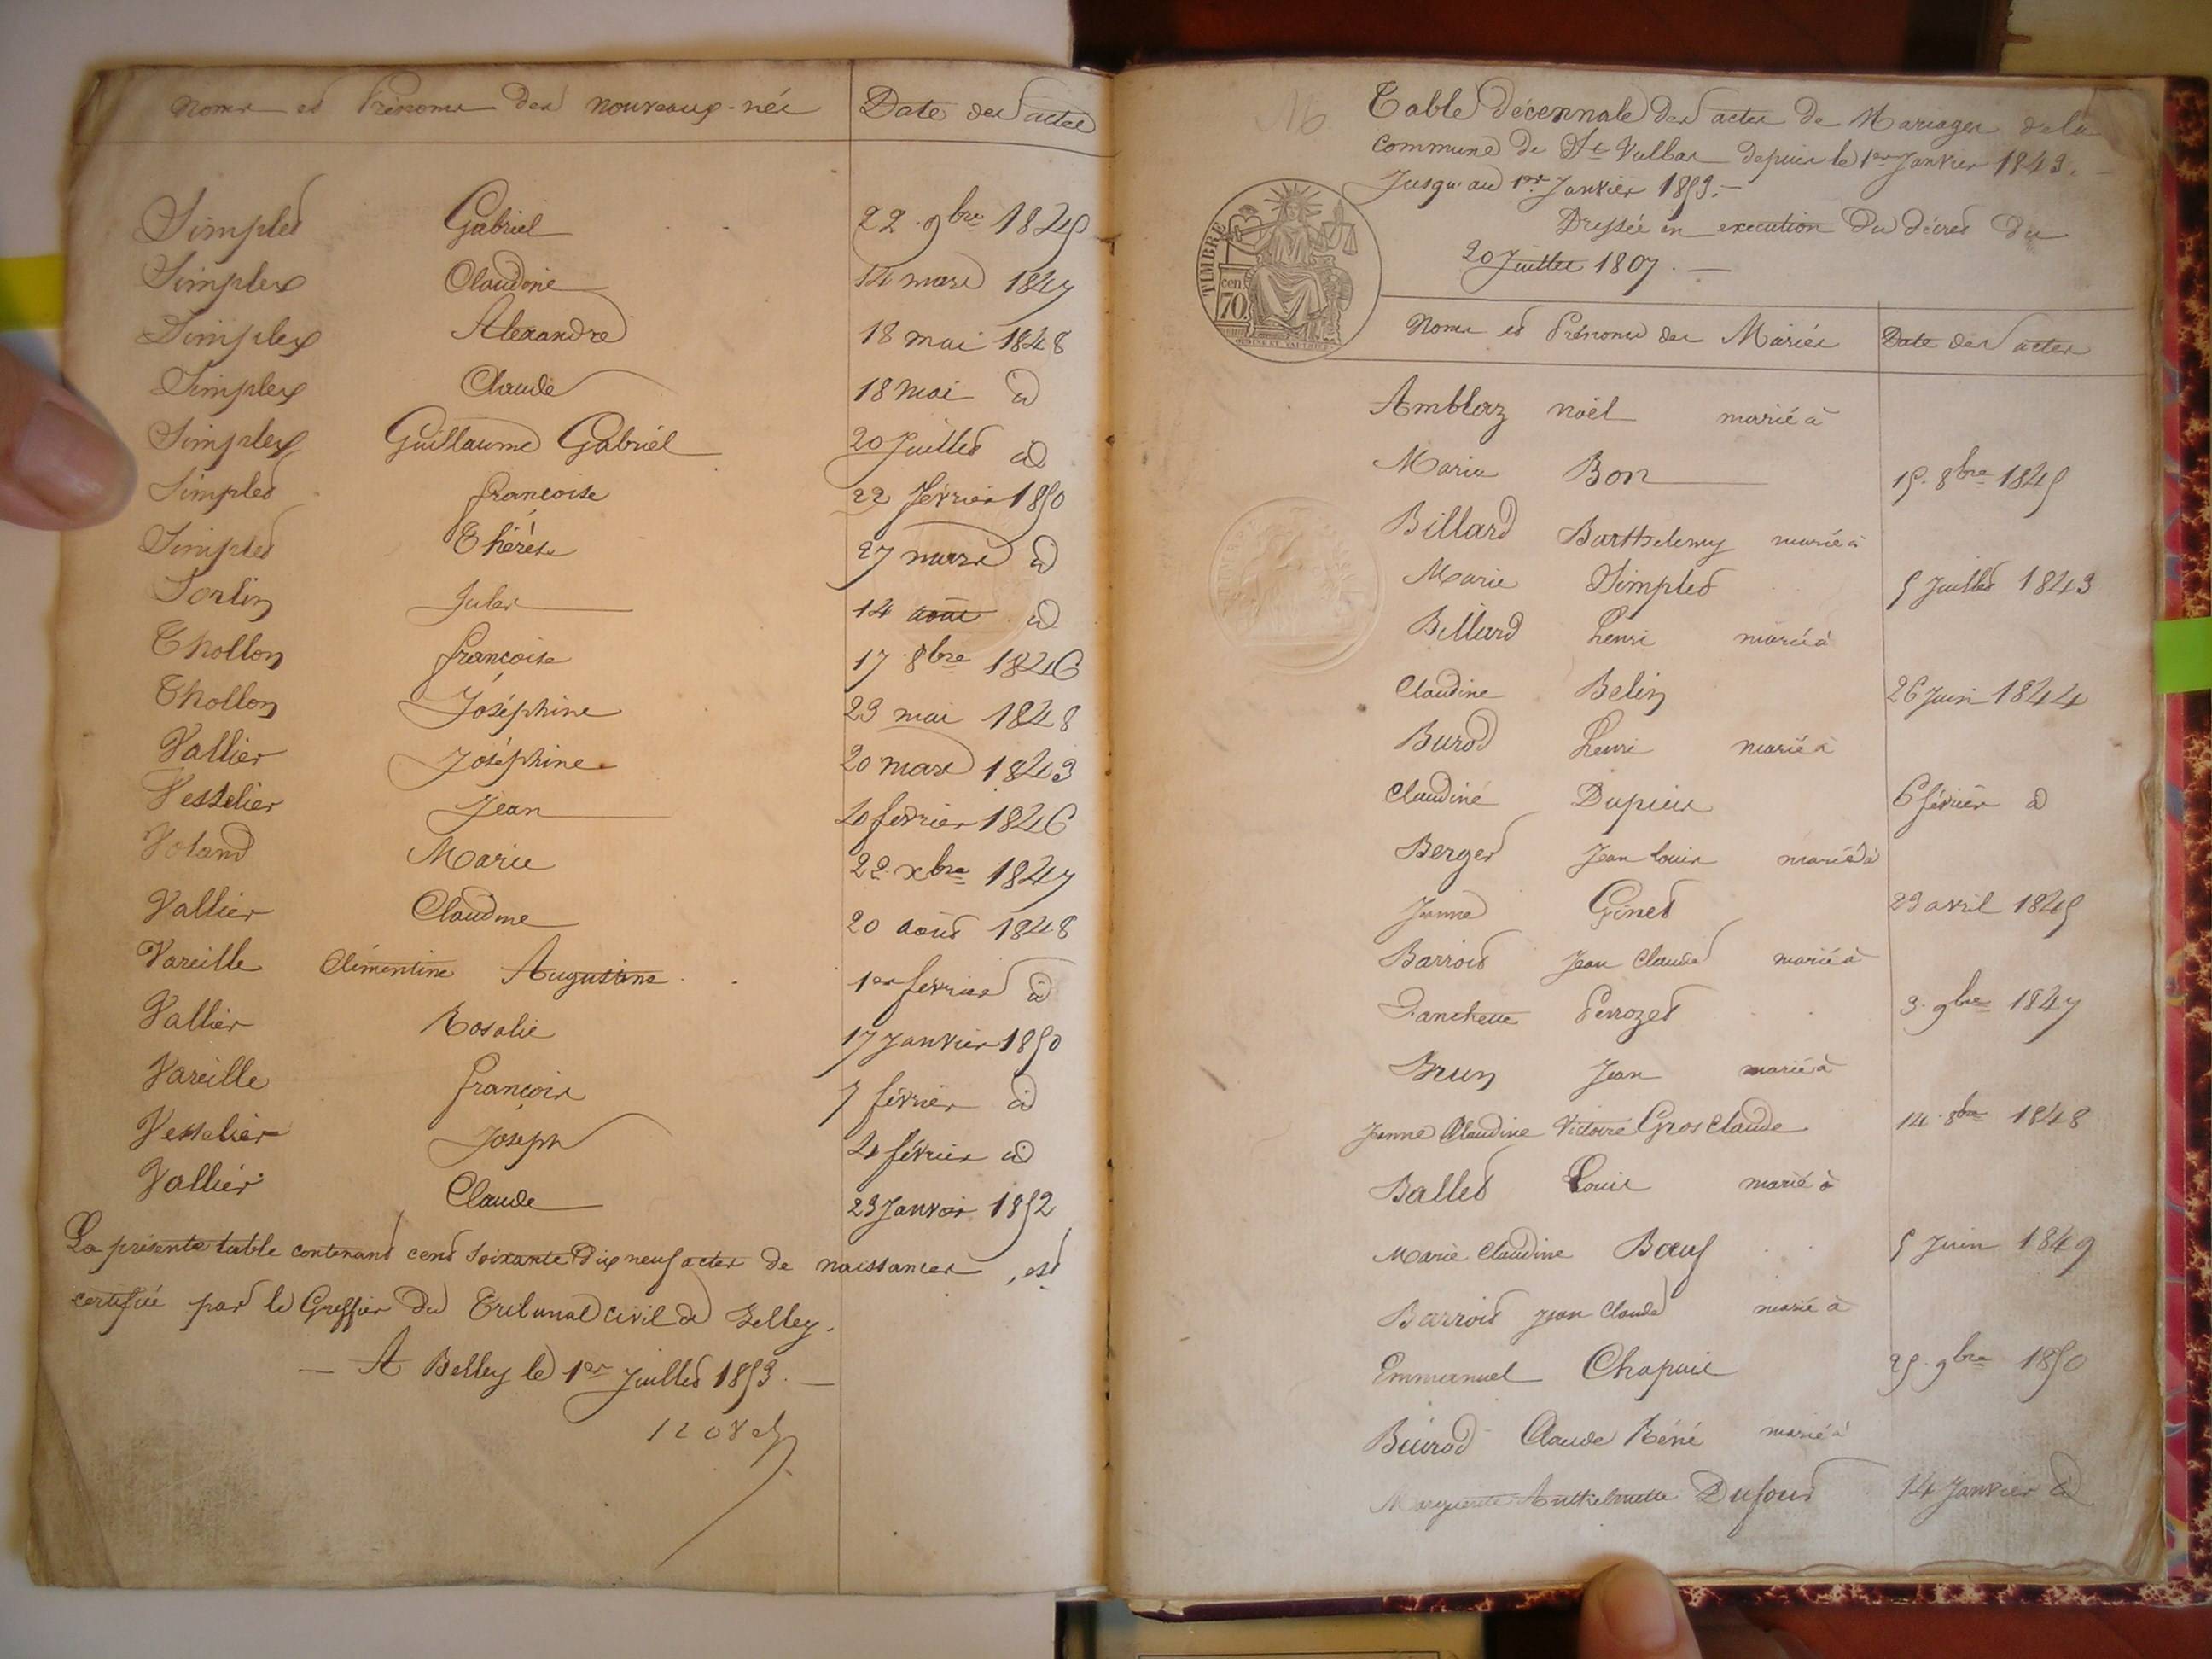 Noms et Prénoms des nouveaux-nés Date des actes
Simplet Gabriel 22. 9bre 1845
Simplex Claudine 14 mars 1847
Simplex Alexandre 18 mai 1848
Simplex Claude 18 mai id
Simplex Guillaume Gabriel 20 Juillet id
Simplet françoise 22 février 1850
Simplet Thérèse 27 mars id
Sorlin Jules 14 août id
Thollon françoise 17 8bre 1846
Thollon Joséphine 23 mai 1848
Vallier Joséphine 20 mars 1843
Vesselier Jean 4 février 1846
Voland Marie 22 xbre 1847
Vallier Claudine 20 août 1848
Vareille Clémentine Augustine 1er février id
Vallier Rosalie 17 Janvier 1850
Vareille françois 7 février id
Vesselier Joseph 4 février id
Vallier Claude 23 Janvier 1852
La présente table contenant cent soixante dix neuf actes de naissances, est
certifiée par le Greffier du Tribunal civil de Belley.
— A Belley le 1er Juillet 1853. —
Table décennale des actes de Mariages de la
commune de St Vulbas depuis le 1er Janvier 1843.
Jusqu'au 1er Janvier 1853. —
Dressée en execution du décret du
20 Juillet 1807. —
TIMBRE
70 cen
Noms et Prénoms des Mariés Date des actes
Amblaz noël marié à
Marie Bon 15. 8bre 1845
Billard Barthelemy marié à
Marie Simplet 5 Juillet 1843
Billard henri marié à
Claudine Belin 26 Juin 1844
Burod henri marié à
Claudine Dupuis 6 février id
Berger Jean Louis marié à
Jeanne Ginet 23 avril 1845
Barroid Jean Claude marié à
fanchette Perrozet 3. 9bre 1847
Brun Jean marié à
Jeanne Claudine Victoire Gros Claude 14. 8bre 1848
Ballet Louis marié à
Marie Claudine Bœuf 5 Juin 1849
Barroid Jean Claude marié à
Emmanuel Chapuis 25. 9bre 1850
Buirod Claude Réné marié à
Marguerite Anthelmette Dufour 14 Janvier id